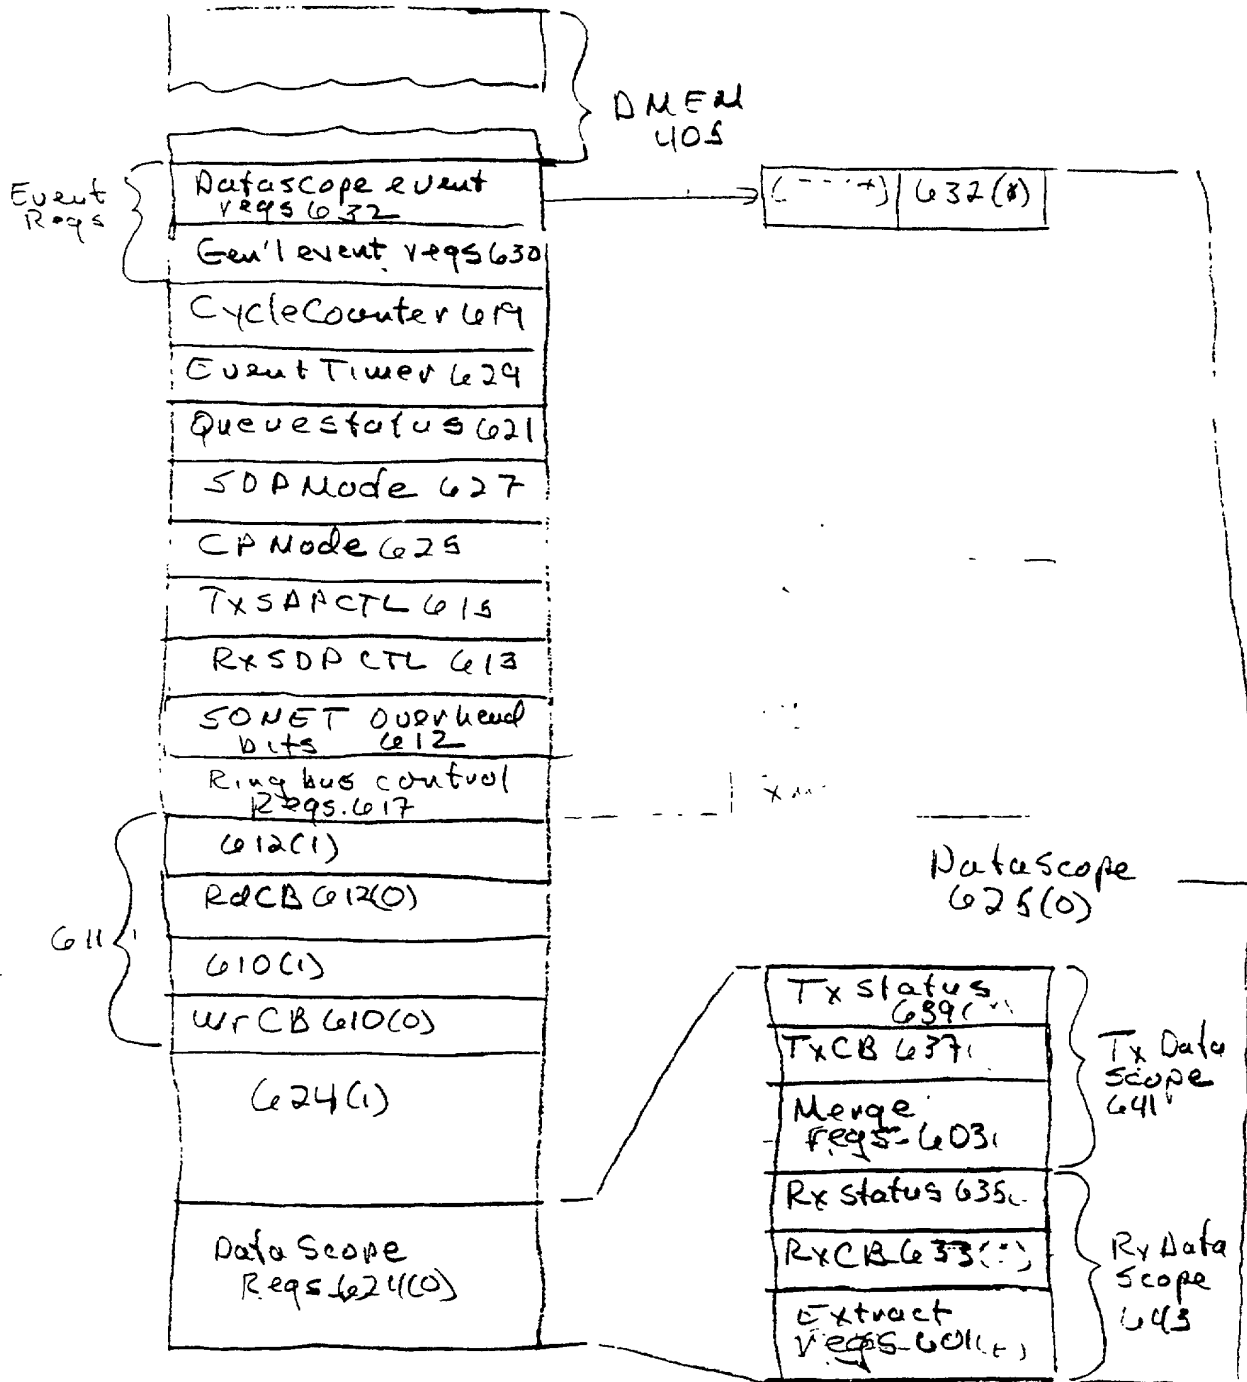 DMEM
405
Event
Regs
Datascope event
regs 632
632(0)
Gen'l event regs 630
CycleCounter 619
Event Timer 629
Queuestatus 621
SDPMode 627
CP Mode 625
TxSDPCTL 615
RxSDP CTL 613
SONET overhead
bits 612
Ring bus control
Regs. 617
611
612(1)
RdCB 612(0)
610(1)
WrCB 610(0)
624(1)
Data Scope
Regs 624(0)
Datascope
625(0)
Tx status
639(
TxCB 637
Merge
regs 603
Tx Data
scope
641
Rx status 635
RxCB 633(
Extract
regs 601(
Rx Data
scope
643